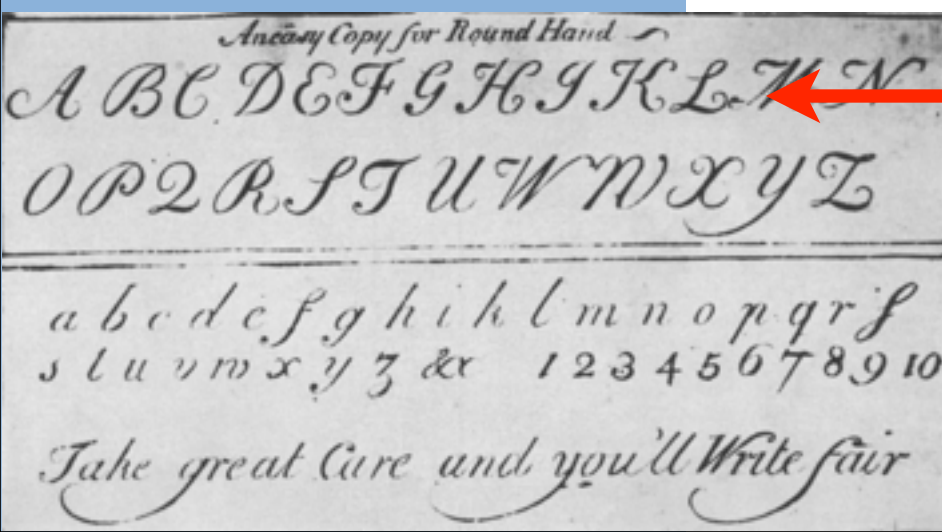 An easy Copy for Round Hand
A B C D E F G H I K L M N
O P Q R S T U W W X Y Z
a b c d e f g h i k l m n o p q r ſ
s t u v w x y z & 1 2 3 4 5 6 7 8 9 10
Take great Care and you'll Write fair